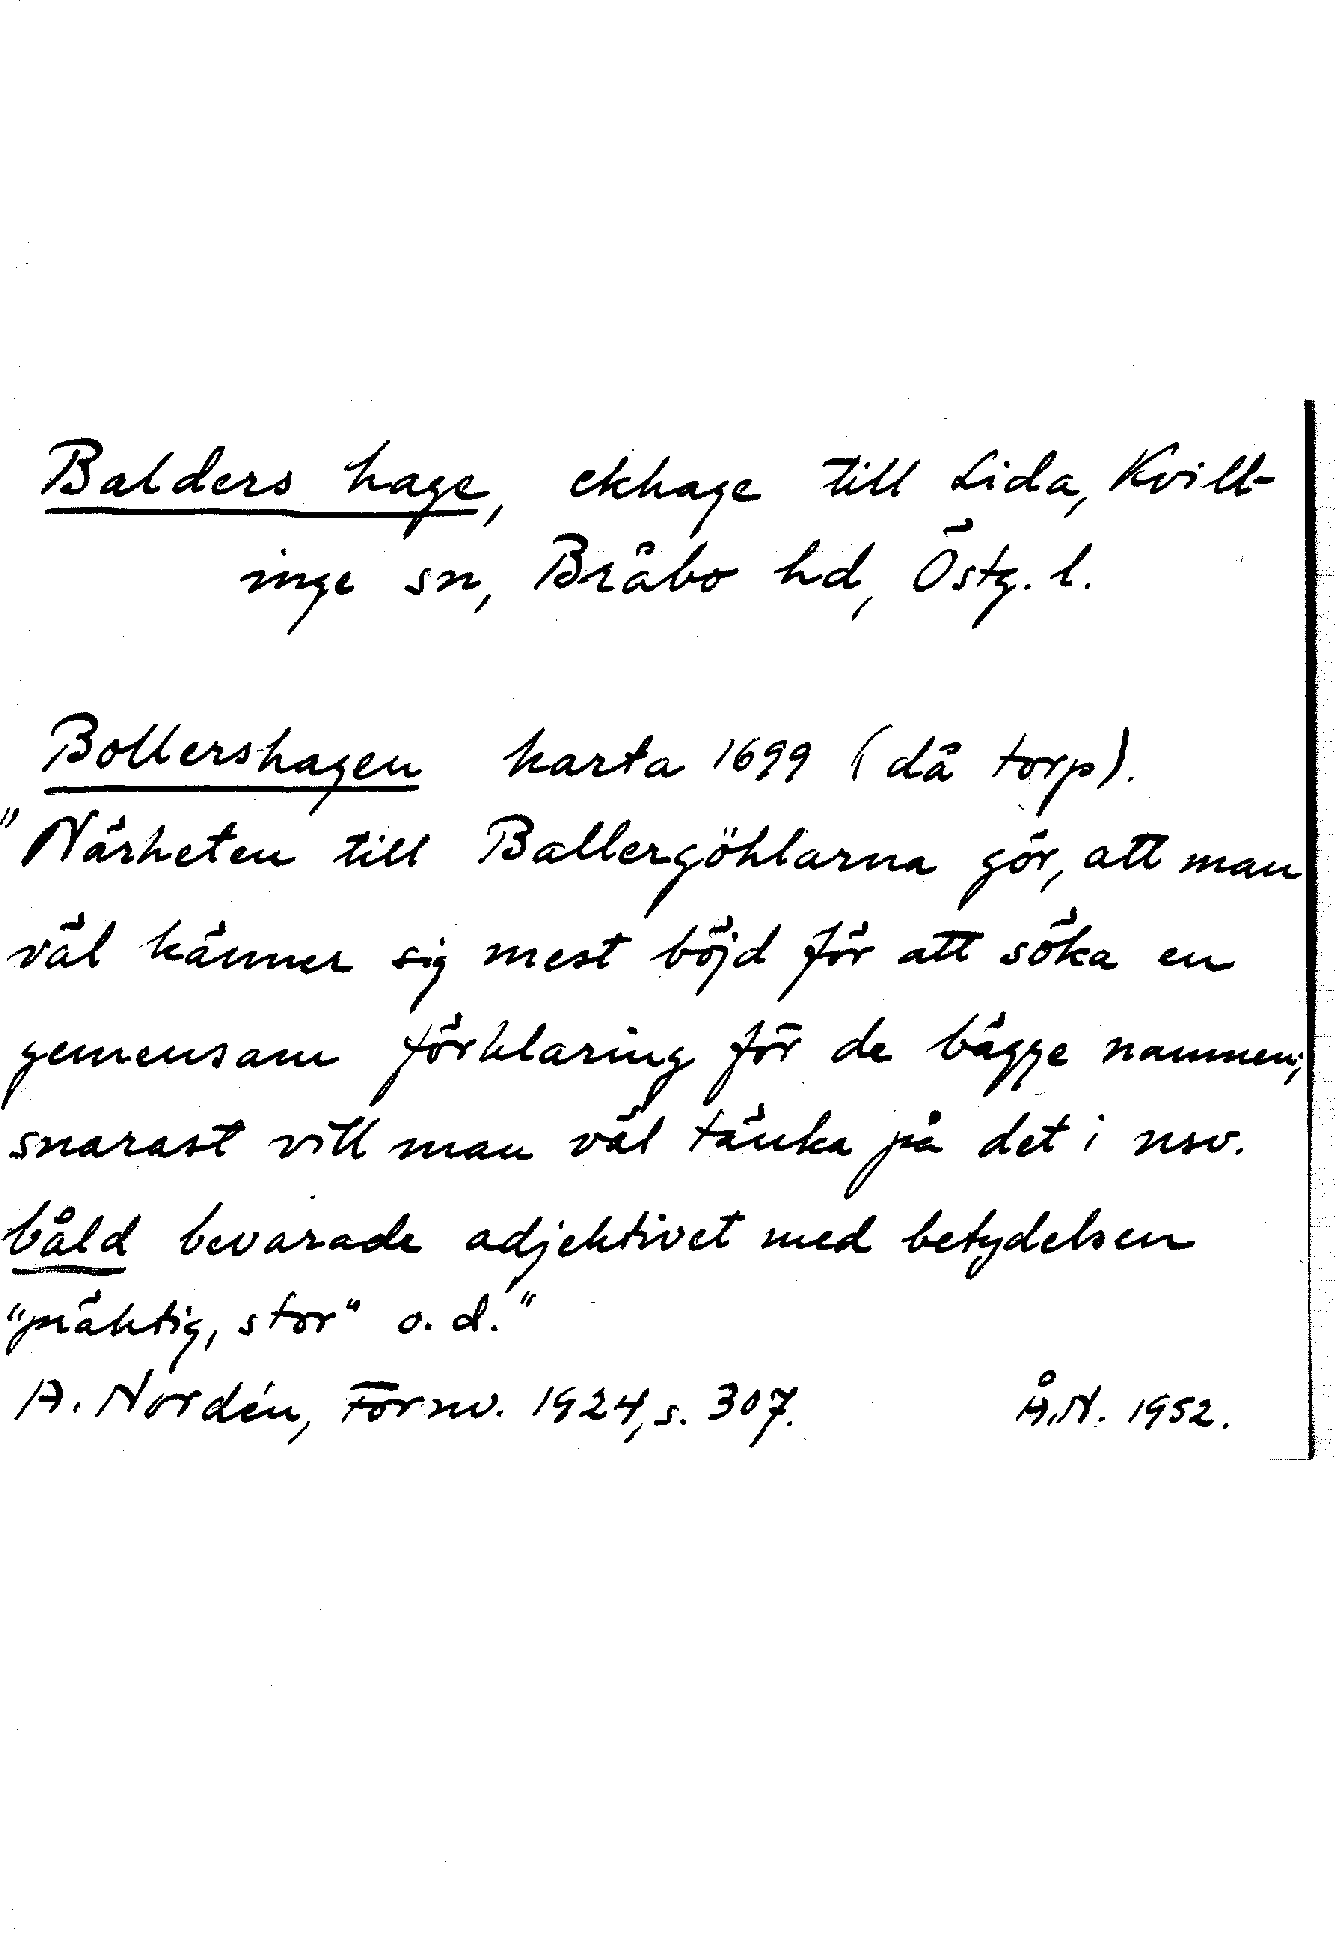 Balders hage, ekhage till Lida, Kvill-
inge sn, Bråbo hd, Östg. l.
Bollershagen karta 1699 (då torp).
"Närheten till Ballergöhlarna gör, att man
väl känner sig mest böjd för att söka en
gemensam förklaring för de bägge namnen;
snarast vill man väl tänka på det i nsv.
båld bevarade adjektivet med betydelsen
"präktig, stor" o. d."
A. Nordén, Fornv. 1924, s. 307. Å.N. 1952.